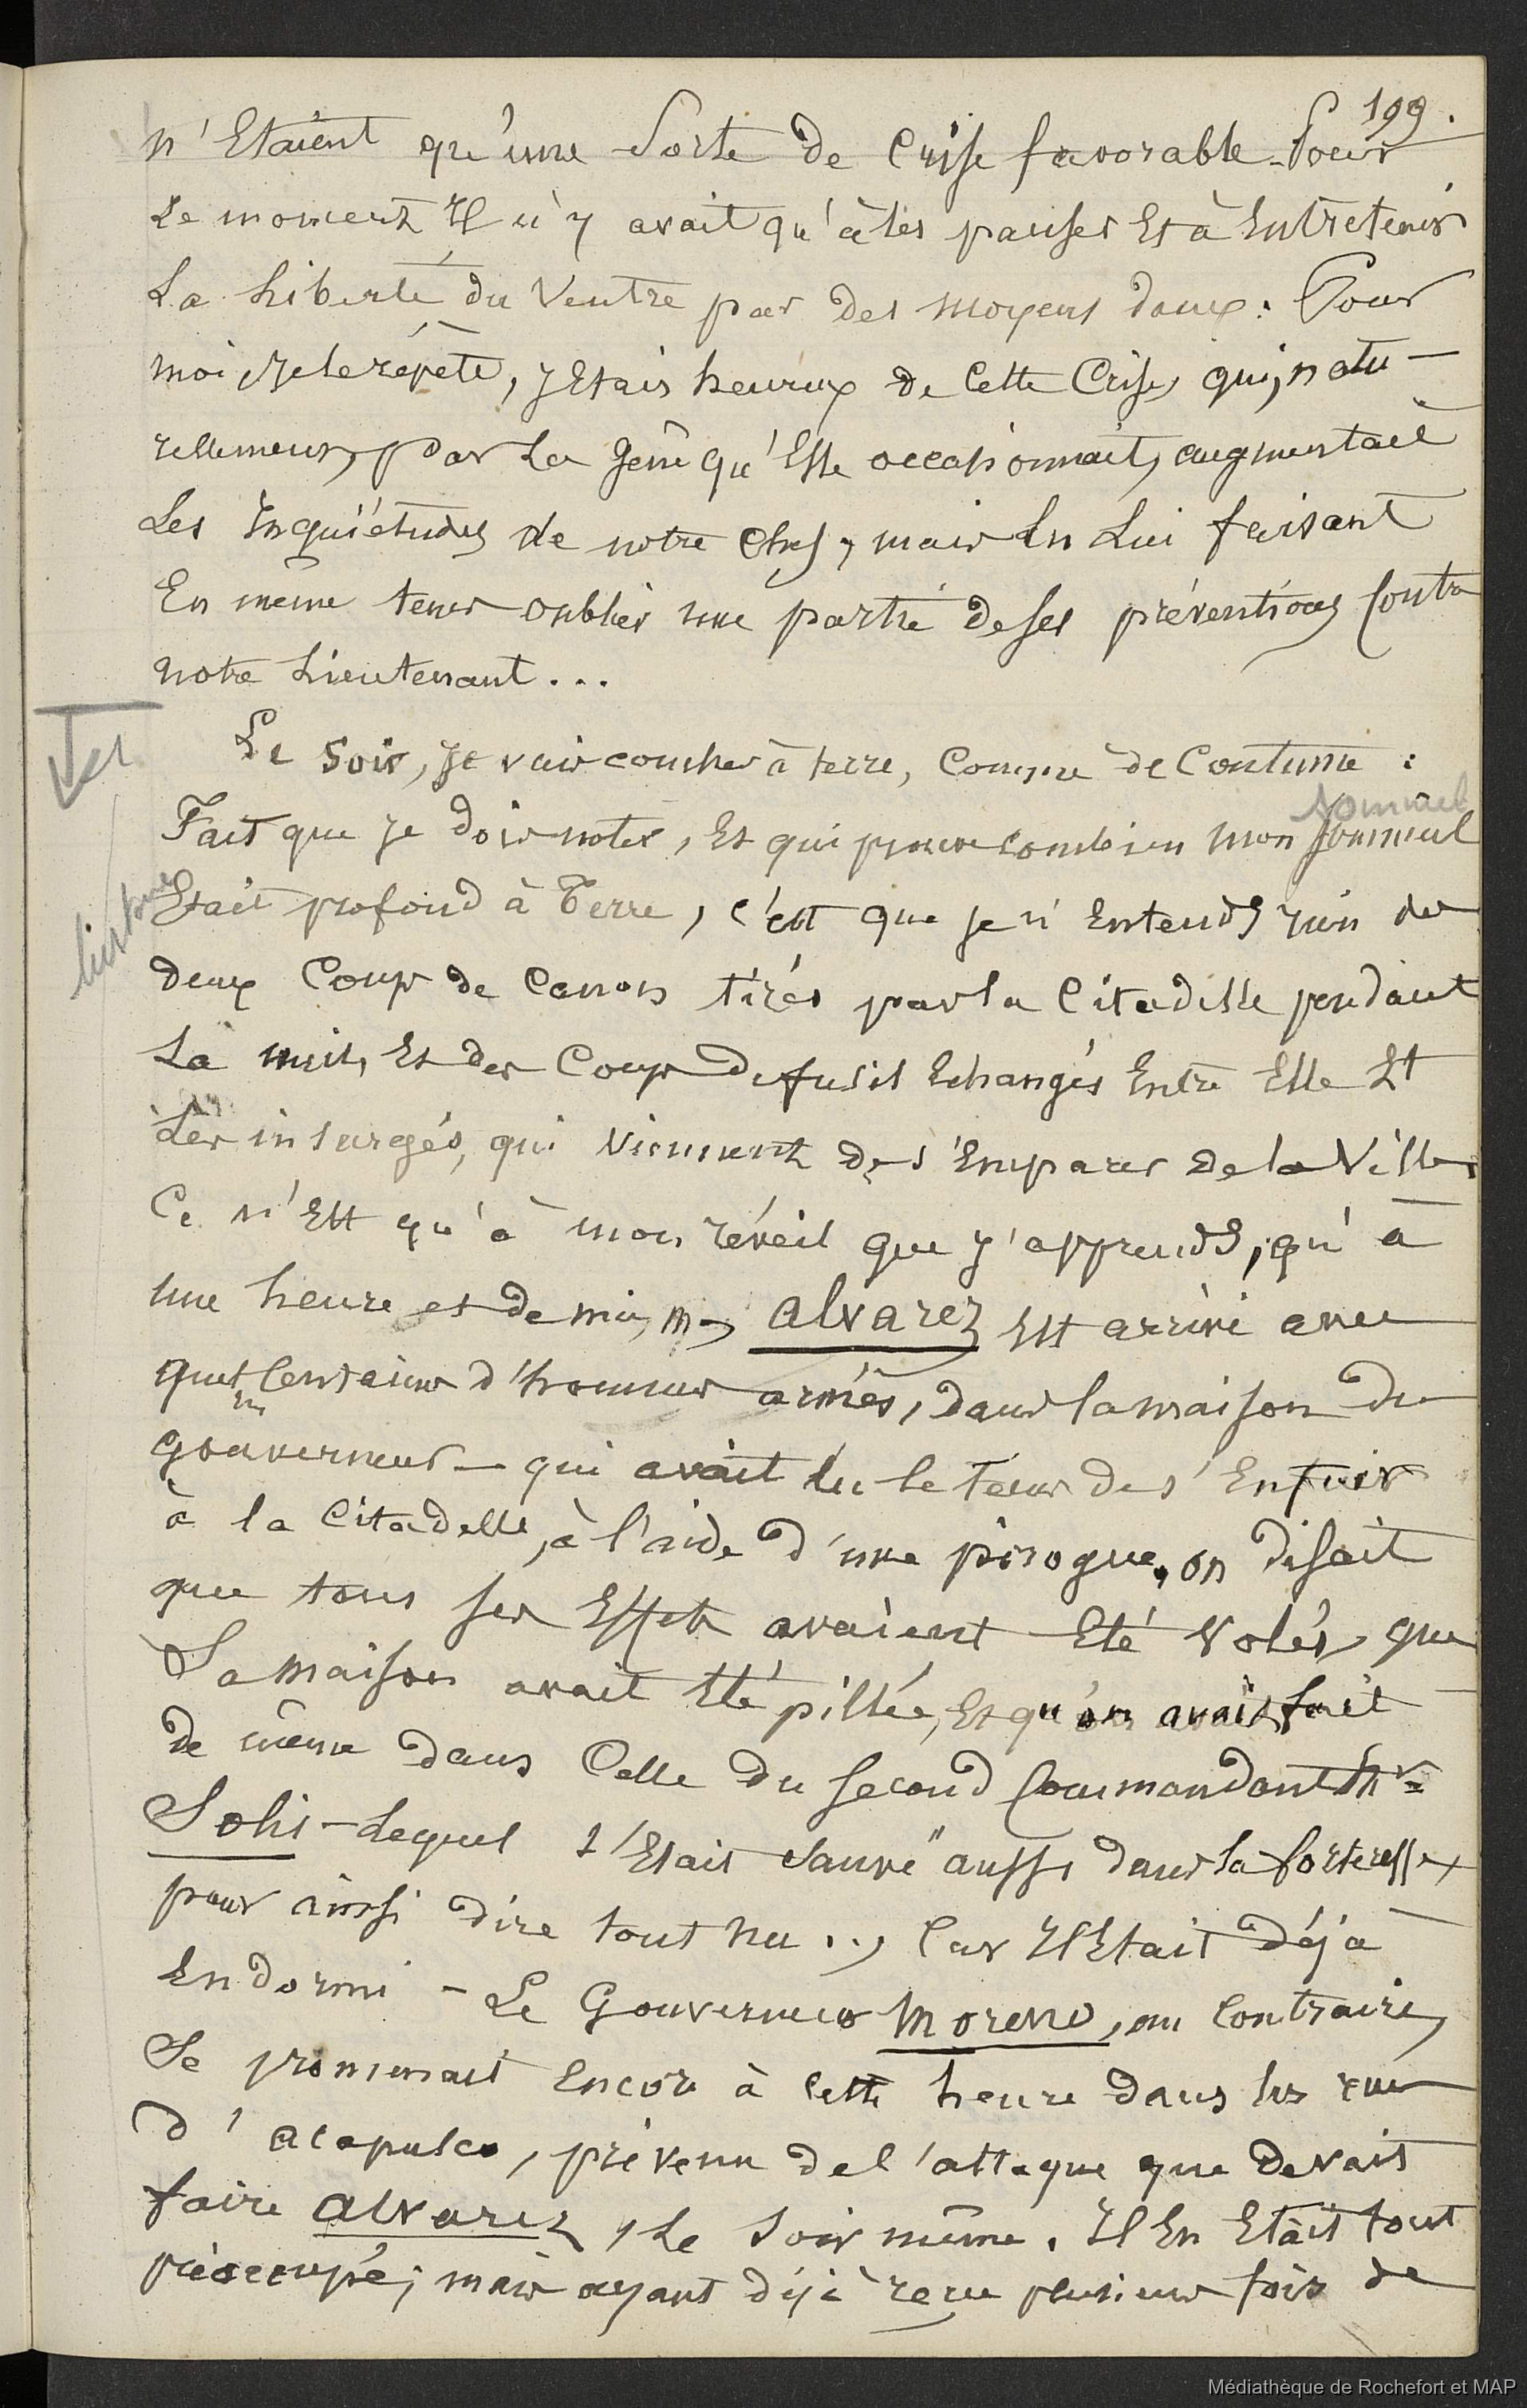 199.
n'Etaient qu'une Sorte de Crise favorable. Pour
Le moment Il n'y avait qu'à les panser Et à Entretenir
La Liberté du Ventre par des moyens doux. Pour
moi, Je le répète, J'Etais heureux de Cette Crise, qui, natu-
rellement, par La Gêne qu'Elle occasionnait, augmentait
Les Inquiétudes de notre Chef, mais En Lui faisant
En même tems oublier une partie de ses préventions Contre
notre Lieutenant...
Le Soir, Je vais coucher à terre, Comme de Coutume :
sommeil
Fait que Je dois noter, Et qui prouve combien mon sommeil
Etait profond à Terre, C'est que Je n'Entends rien des
deux Coups de Canon tirés par la Citadelle pendant
La nuit, Et des Coups de fusil Echangés Entre Elle Et
Les insurgés, qui viennent de s'Emparer de la Ville,
Ce n'Est qu'à mon réveil que J'apprends, qu'à
une heure et demie, Mr Alvarez Est arrivé avec
quelq centaines d'hommes armés, dans la maison du
Gouverneur - qui avait Eu le tems de s'Enfuir
à la Citadelle, à l'aide d'une pirogue, on disait
que tous ses Effets avaient Eté volés, que
Sa maison avait Eté pillée, Et qu'on avait fait
de même dans Celle du second Commandant Mr
Solis - Lequel s'Etait sauvé aussi dans la forteresse,
pour ainsi dire tout nu .., Car Il Etait Déjà
Endormi - Le Gouverneur Moreno, au Contraire,
Se promenait Encore à Cette heure dans les rues
d'Acapulco, prévenu de l'attaque que Devait
faire Alvarez, Le Soir même. Il En Etait tout
préoccupé ; mais ayant déjà reçu plusieurs fois de
Médiathèque de Rochefort et MAP